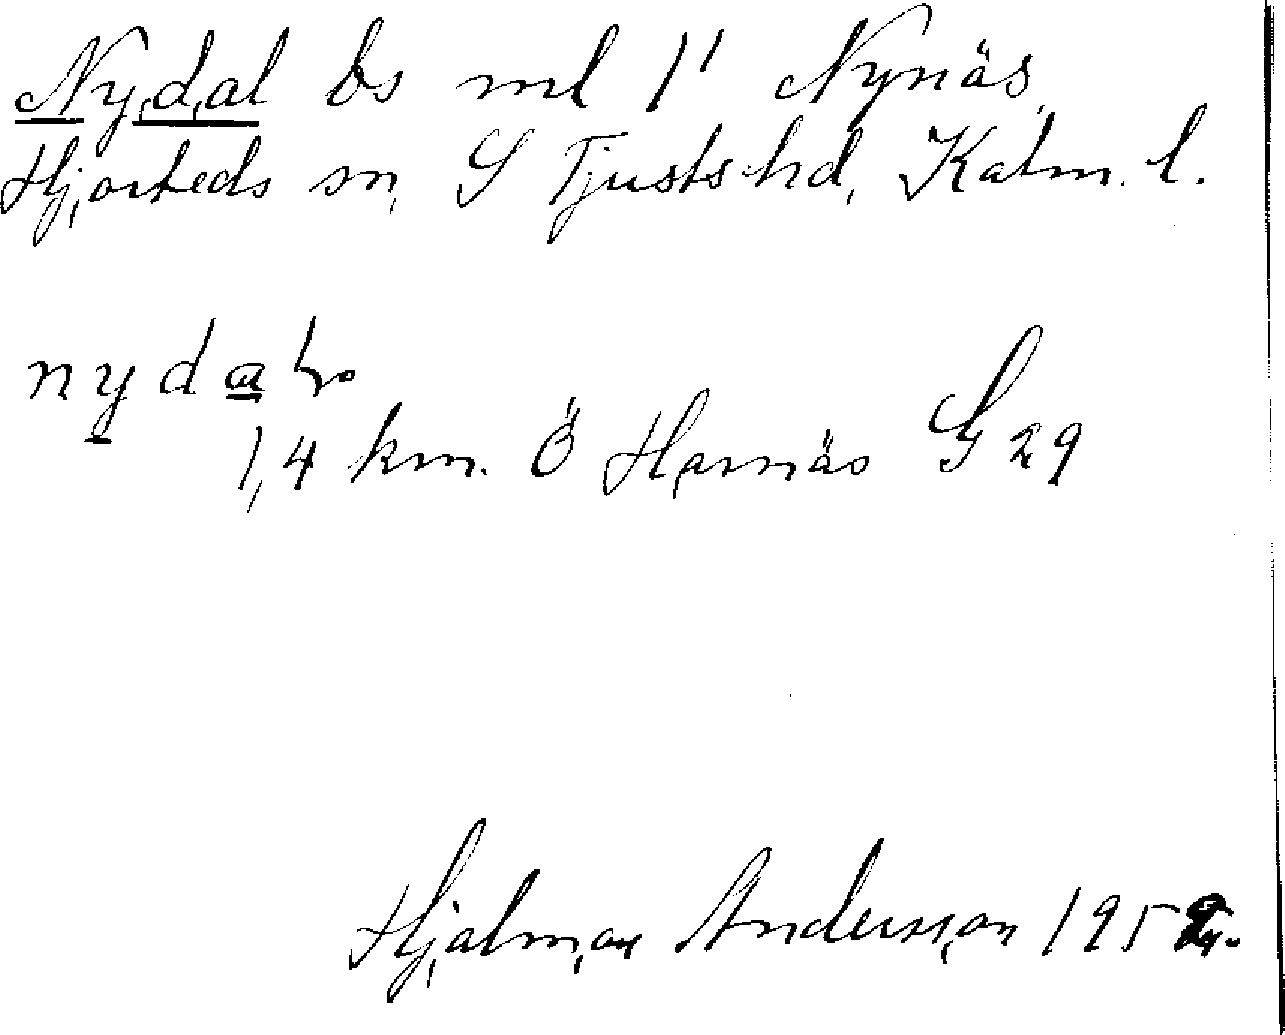 Nydal bs ml 1' Nynäs,
Hjorteds sn, S Tjusts hd, Kalm. l.
nydal.
1,4 km. Ö Harnäs G 29
Hjalmar Andersson